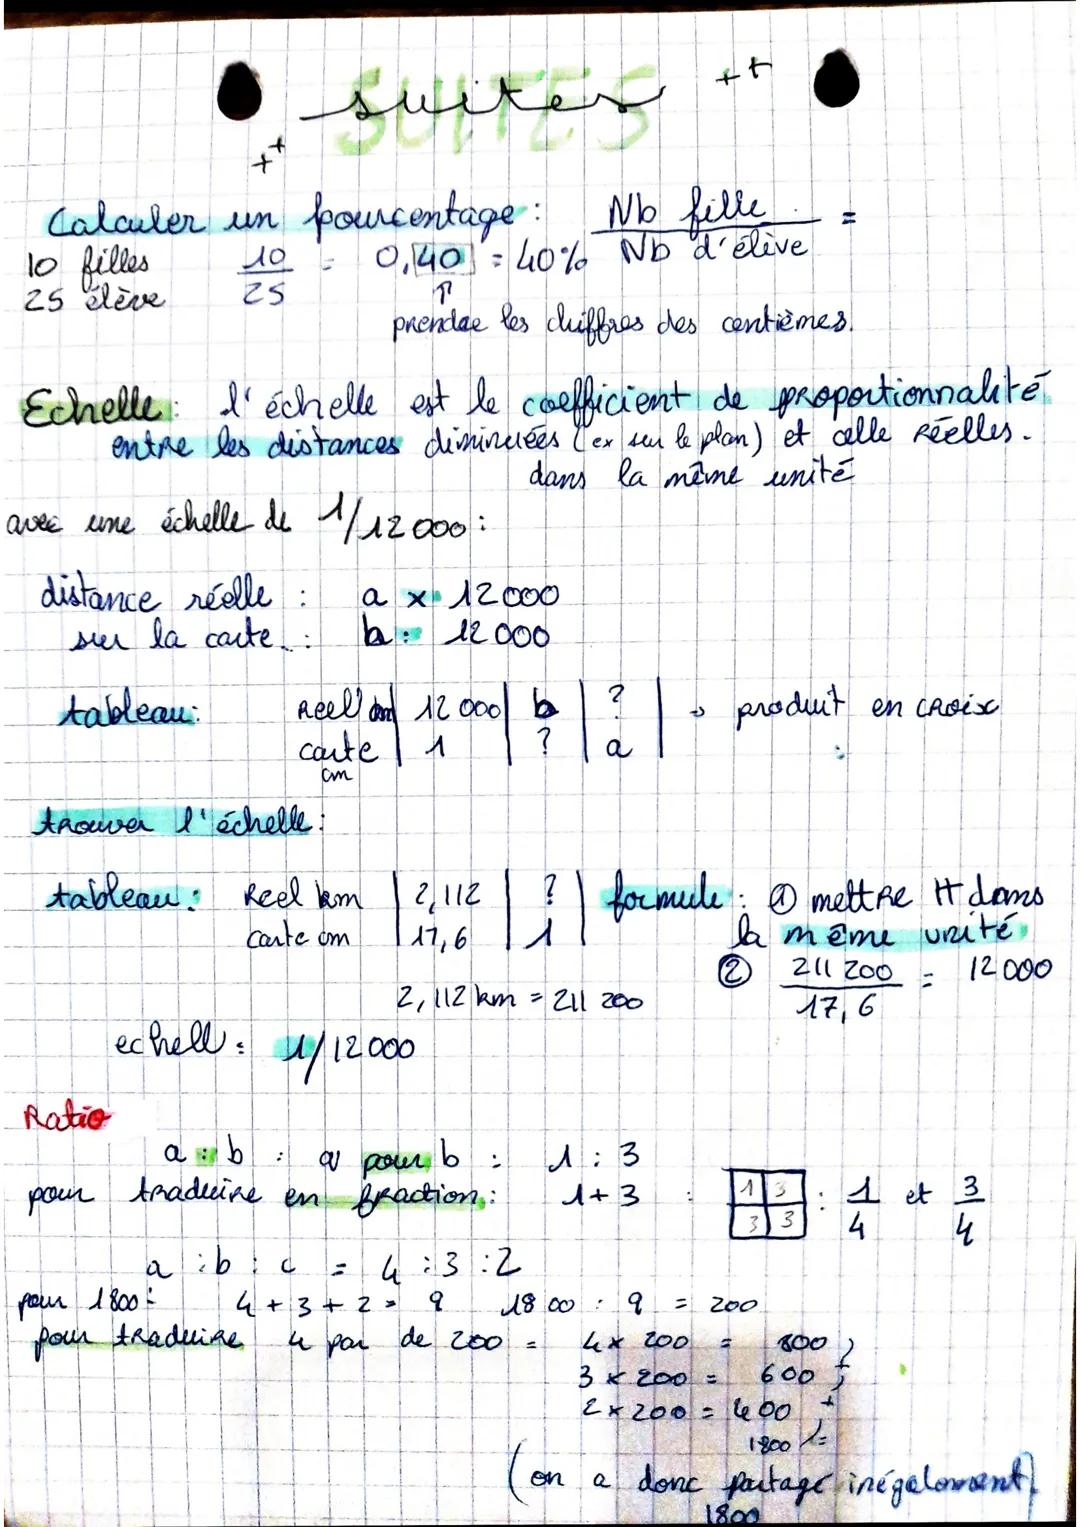 suites ++
SUITES
++
Calculer un pourcentage : Nb fille / Nb d'élève =
10 filles 10/25 = 0,40 = 40%
25 élève ↑
prendre les chiffres des centièmes.
Echelle : l'échelle est le coefficient de proportionnalité
entre les distances diminuées (ex sur le plan) et celle réelles.
dans la même unité
avec une échelle de 1/12000 :
distance réelle : a x 12000
sur la carte : b : 12000
tableau: Reel cm | 12 000 | b | ? | → produit en croix
carte cm | 1 | ? | a | :
trouver l'échelle :
tableau : Reel km | 2,112 | ? | formule : ① mettre tt dans
Carte cm | 17,6 | 1 | la même unité
② 211 200 / 17,6 = 12000
2,112 km = 211 200
echell : 1/12000
Ratio
a : b : a pour b : 1 : 3
pour traduire en fraction : 1+3 : 1 3 3 3 : 1/4 et 3/4
a : b : c = 4 : 3 : 2
pour 1800 : 4 + 3 + 2 = 9 1800 : 9 = 200
pour traduire 4 par de 200 = 4 x 200 = 800 +
3 x 200 = 600 +
2 x 200 = 400 +
1800 =
(on a donc partagé inégalement)
1800